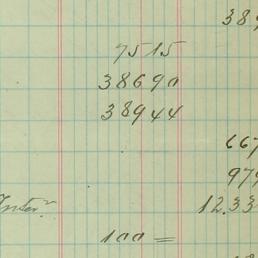 389
7515
38690
38944
667
979
12.33
Inter.
100 =